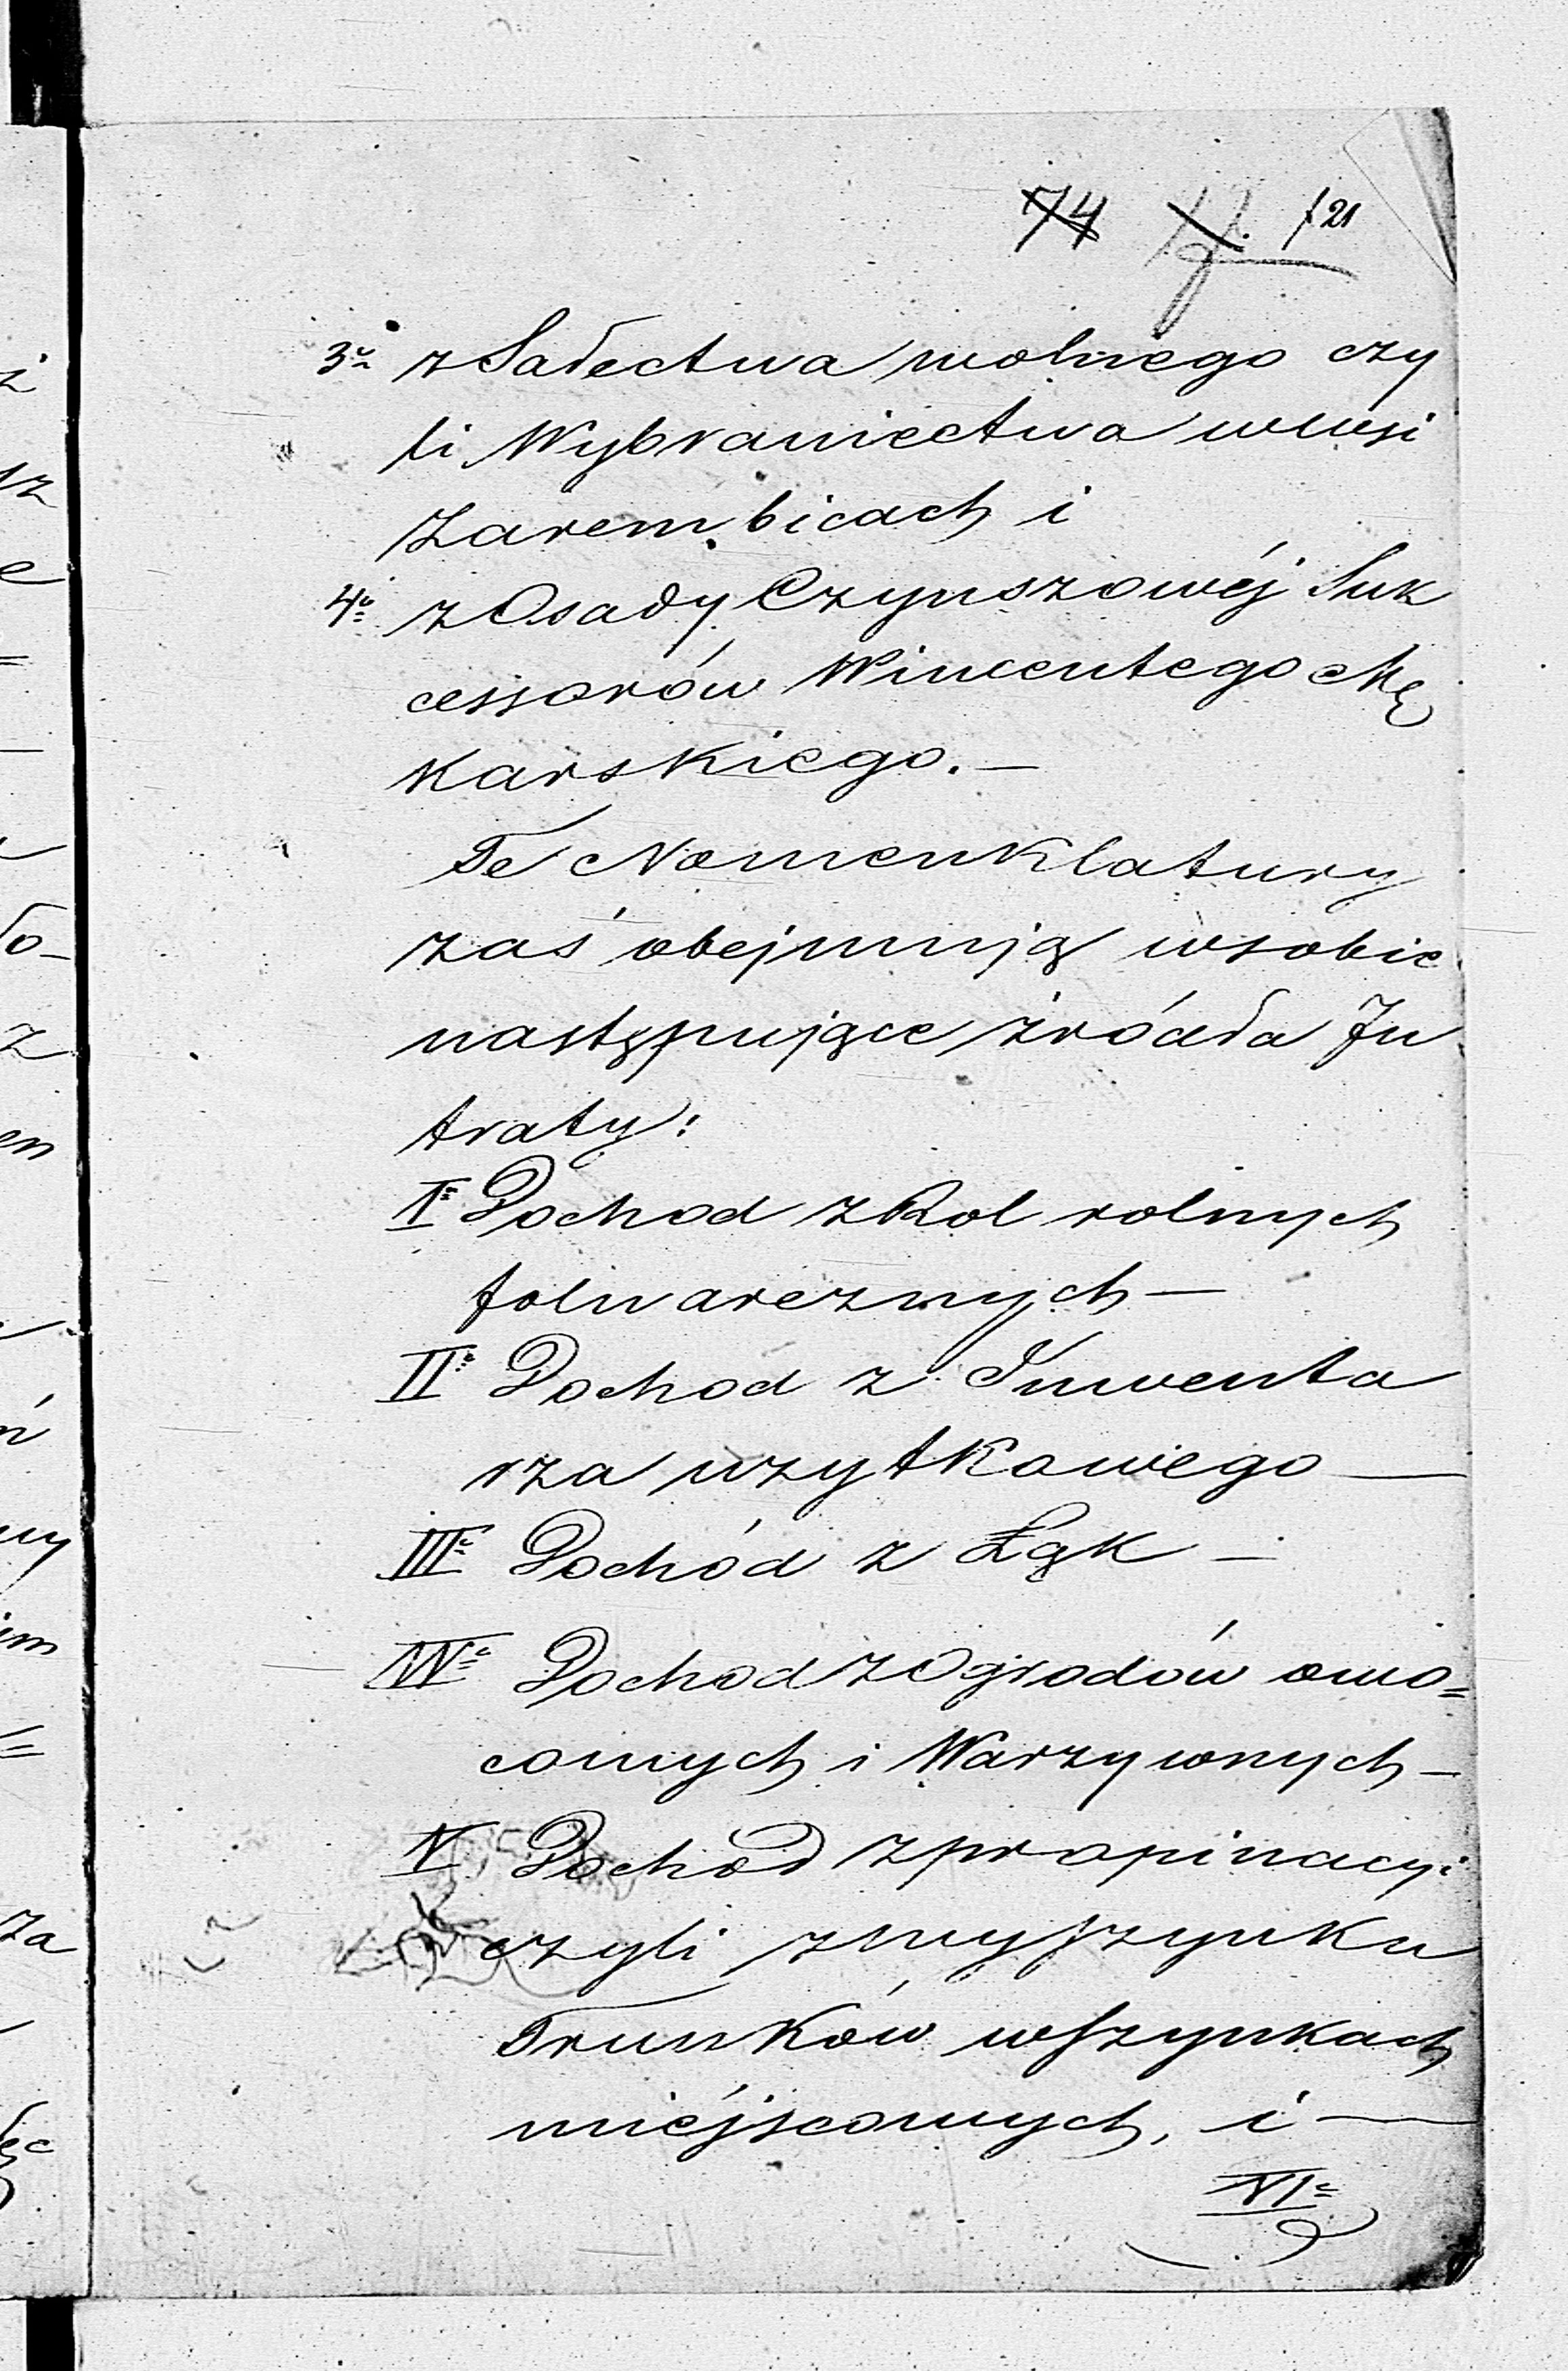 74 121
3º z Sałectwa wolnego czy
li Wybraniectwa wwsi
Zarembicach i
4º z Osady Czynszowéj Suk
cessorów Wincentego Mę
karskiego. —
Te Nomenklatury
zaś obejmują wsobie
następujące źródła In
traty:
Iº Dochod z Rol rolnych
folwarcznych —
IIº Dochod z Inwenta
rza uzytkowego —
IIIº Dochód z Łąk —
IVº Dochod z Ogrodów owo=
cowych i Warzywnych —
V. Dochód z propinacyi
czyli zwyszynku
Trunków wszynkach
miéjscowych, i —
VIº